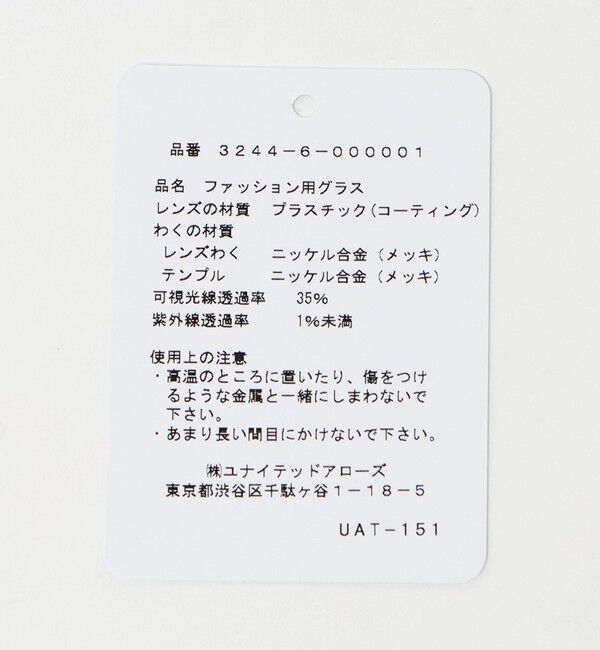 品番 3244-6-000001
品名 ファッション用グラス
レンズの材質 プラスチック(コーティング)
わくの材質
レンズわく ニッケル合金(メッキ)
テンプル ニッケル合金(メッキ)
可視光線透過率 35%
紫外線透過率 1%未満
使用上の注意
・高温のところに置いたり、傷をつけ
るような金属と一緒にしまわないで
下さい。
・あまり長い間目にかけないで下さい。
㈱ユナイテッドアローズ
東京都渋谷区千駄ヶ谷1-18-5
UAT-151